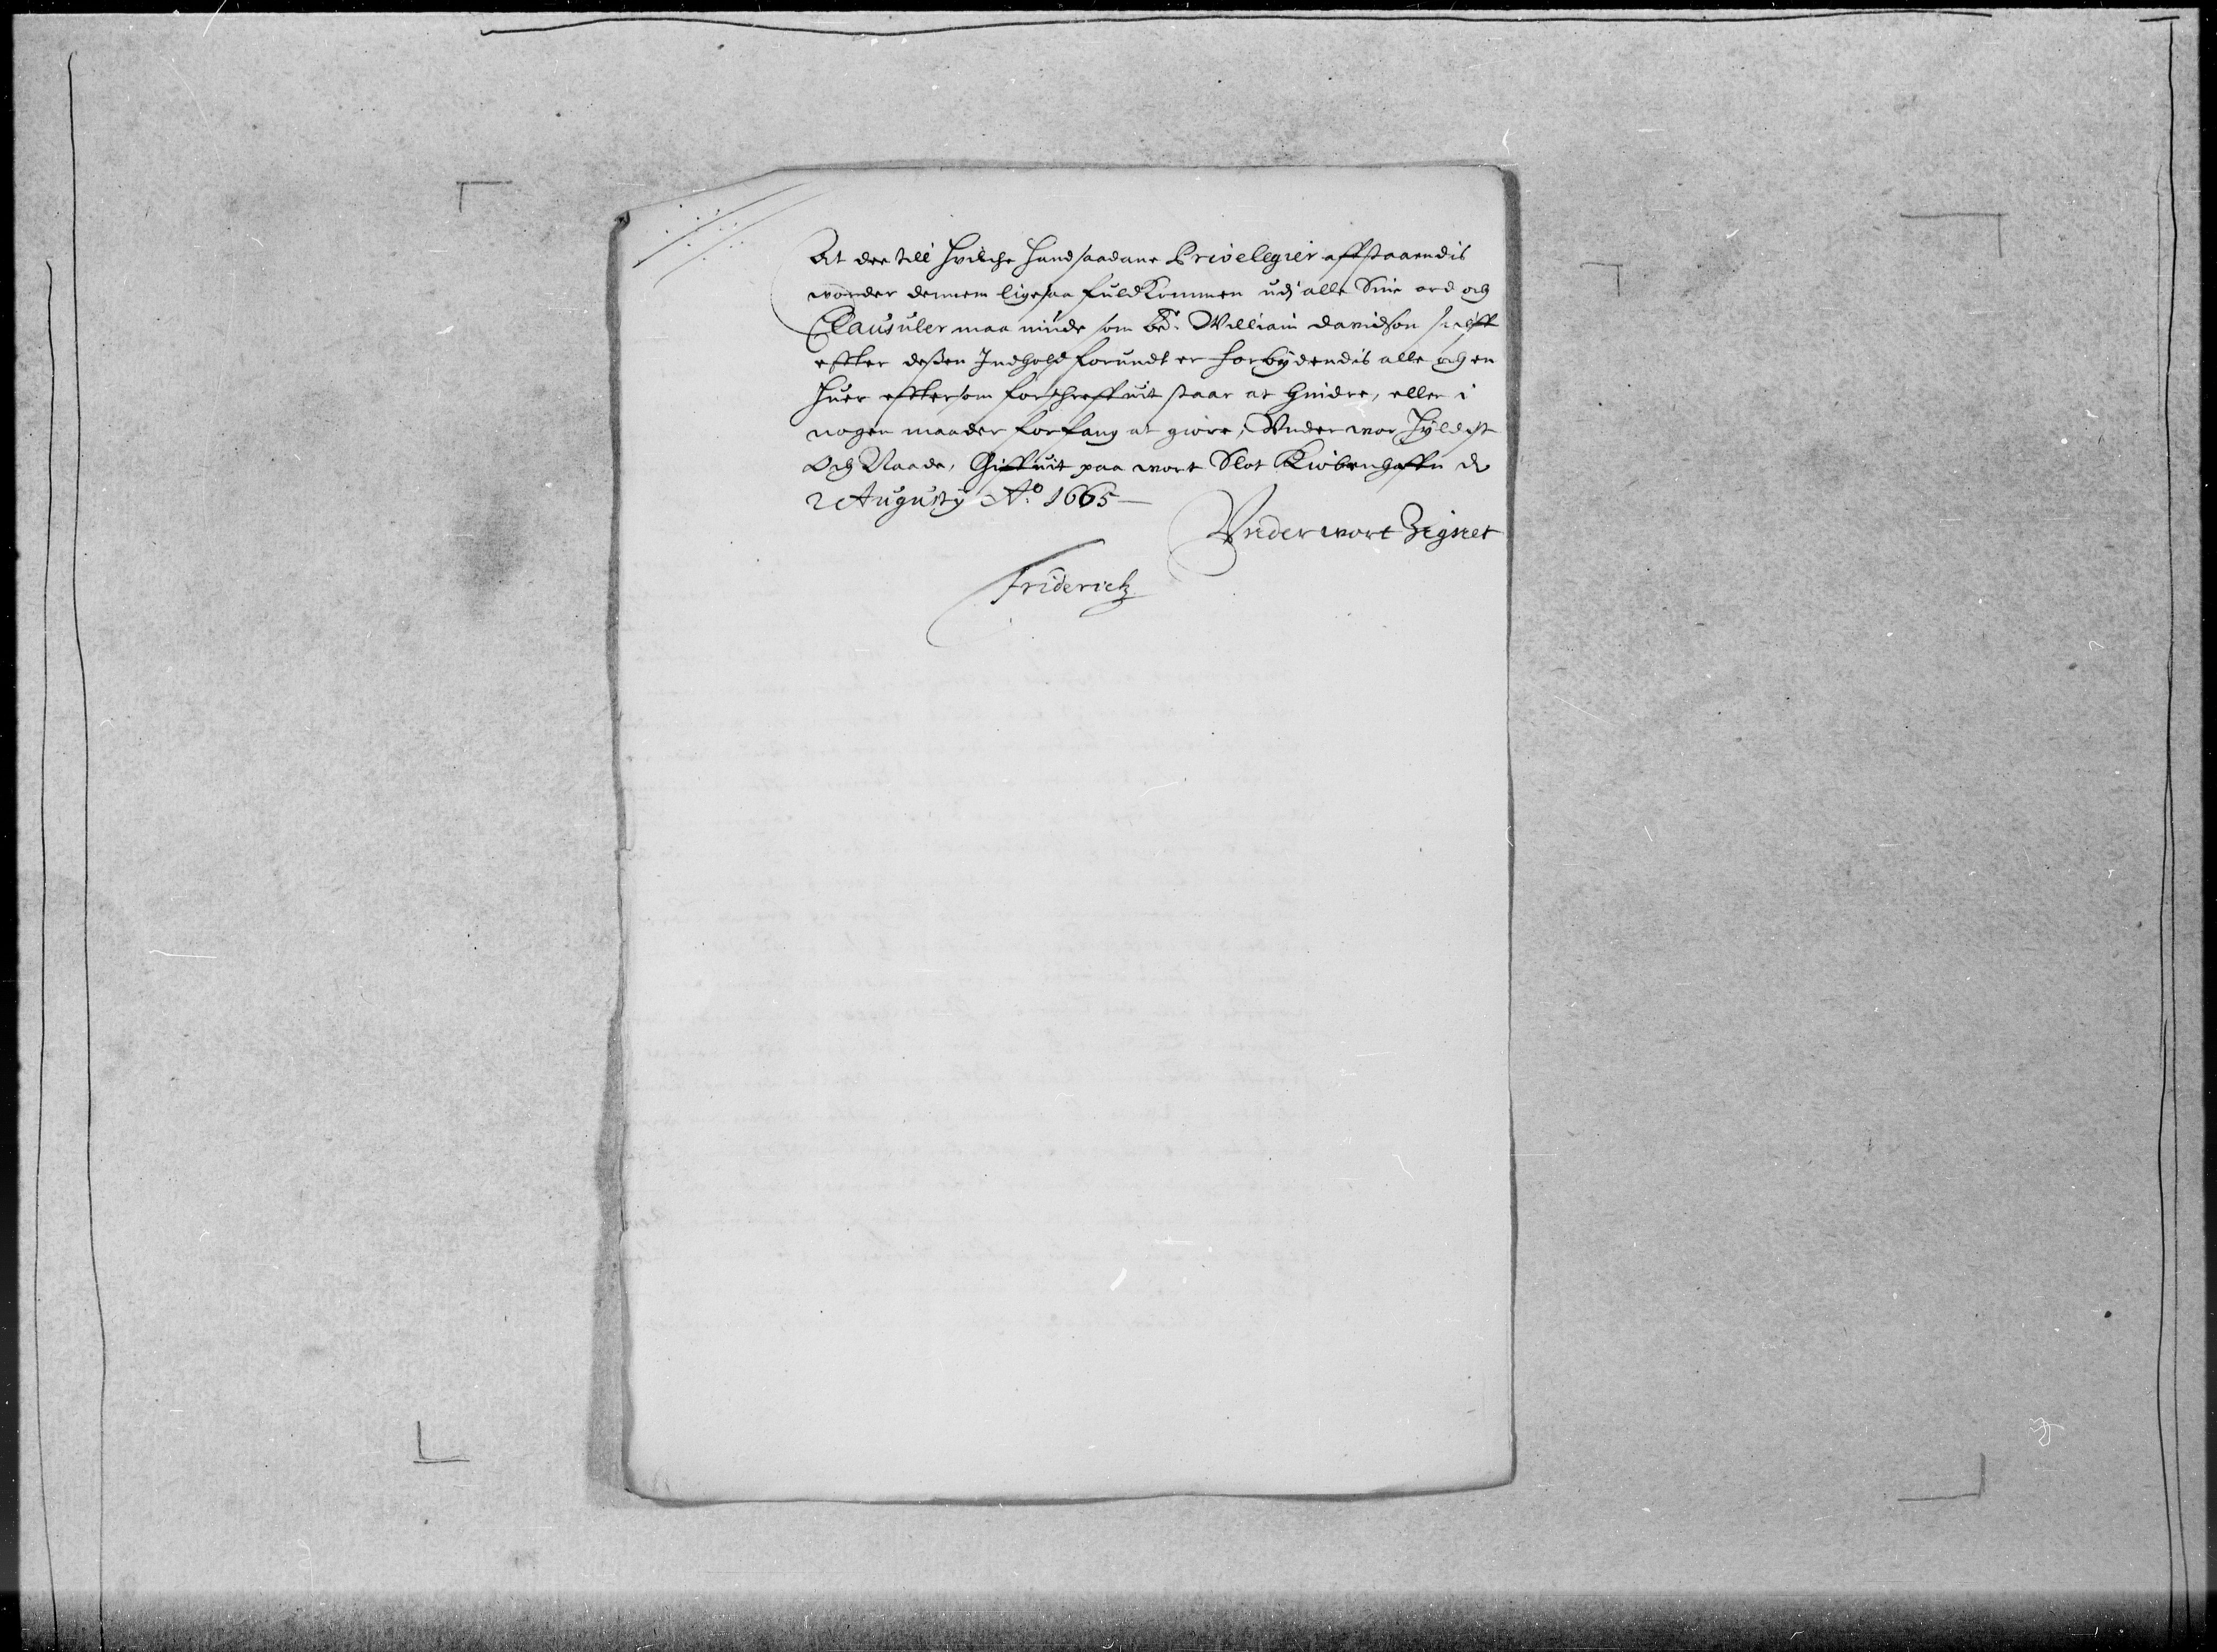 At der till Hvilche Hand saadane Privelegier affstaaendis
worder dennem ligesaa fuldKommen udj alle Sine ord och
Clausuler maa niude som bete. William Davidson sielff
effter deßen Indhold forundt er forbydendis alle och en
huer effter som forschreffuit staar at hindre, eller i
nogen maader forfang at giøre, Vnder wor Hyldist
Och Naade, Giffuit paa wort Slot Kiøbenhaffn d
2 Augustij Ao. 1665
Vnder wort Zignet
Friderich